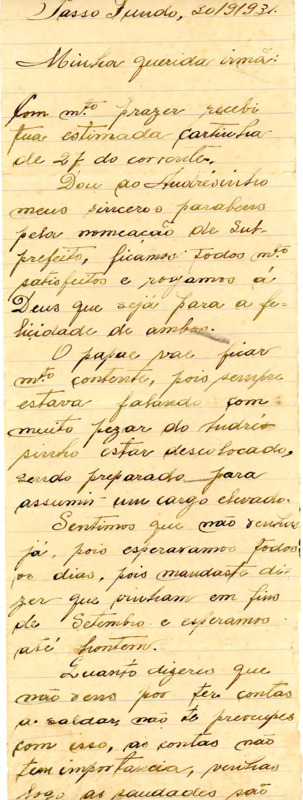 Passo Fundo, 30/9/931.
Minha querida irmã:
Com mto prazer recebi
tua estimada cartinha
de 27 do corrente.
Dou ao Andrésinho
meus sinceros parabens
pela nomeação de Sub-
prefeito, ficamos todos mto
satisfeitos e rogamos á
Deus que sejá para a fe-
licidade de ambos.
O papae vae ficar
mto contente, pois sempre
estava falando com
muito pezar do André
sinho estar descolocado,
sendo preparado para
assumir um cargo elevado.
Sentimos que não venhas
já, pois esperavamos todos
os dias, pois mandaste di-
zer que vinham em fins
de Setembro e esperamos
até hontem.
Quanto dizeres que
não vens por ter contas
a saldar, não te preocupes
com isso, as contas não
tem importancia, venhas
logo as saudades são